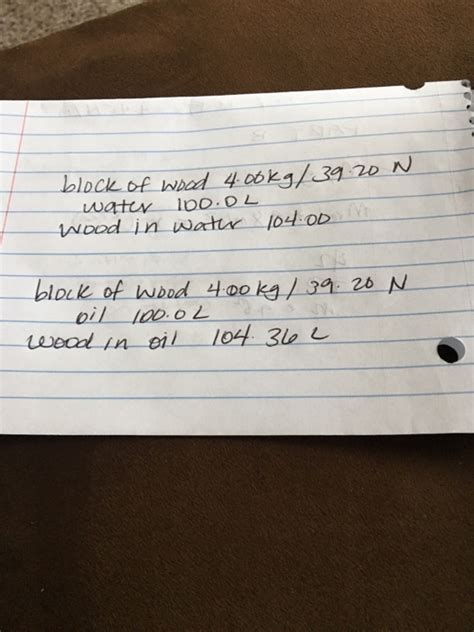 block of wood 4.00kg / 39.20 N
water 100.0L
wood in water 104.00
block of wood 4.00 kg / 39.20 N
oil 100.0 L
wood in oil 104.36 L